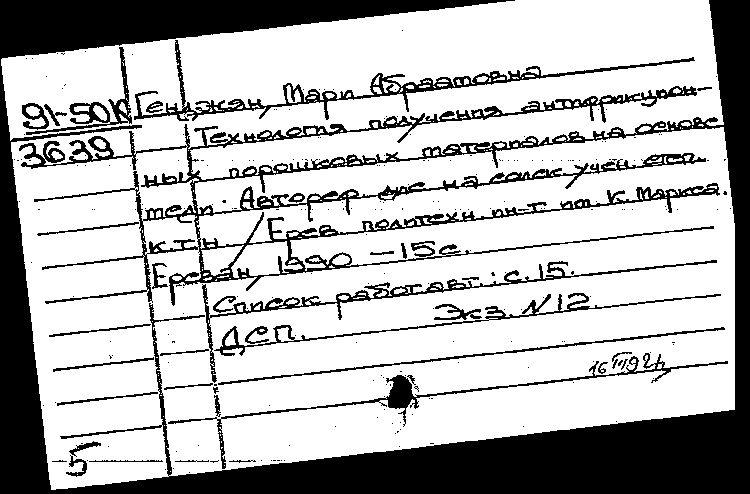 91-50К Генджян, Мари Абраамовна
3639 Технология получения антифрикцион-
ных порошковых материалов на основе
меди. Автореф. дис на соиск. учен. степ.
к.т.н. Ерев. политехн. ин-т. им. К. Маркса.
Ереван, 1990 – 15 с.
Список работ авт.: с. 15.
ДСП. Экз. N 12.
16 III 92
5